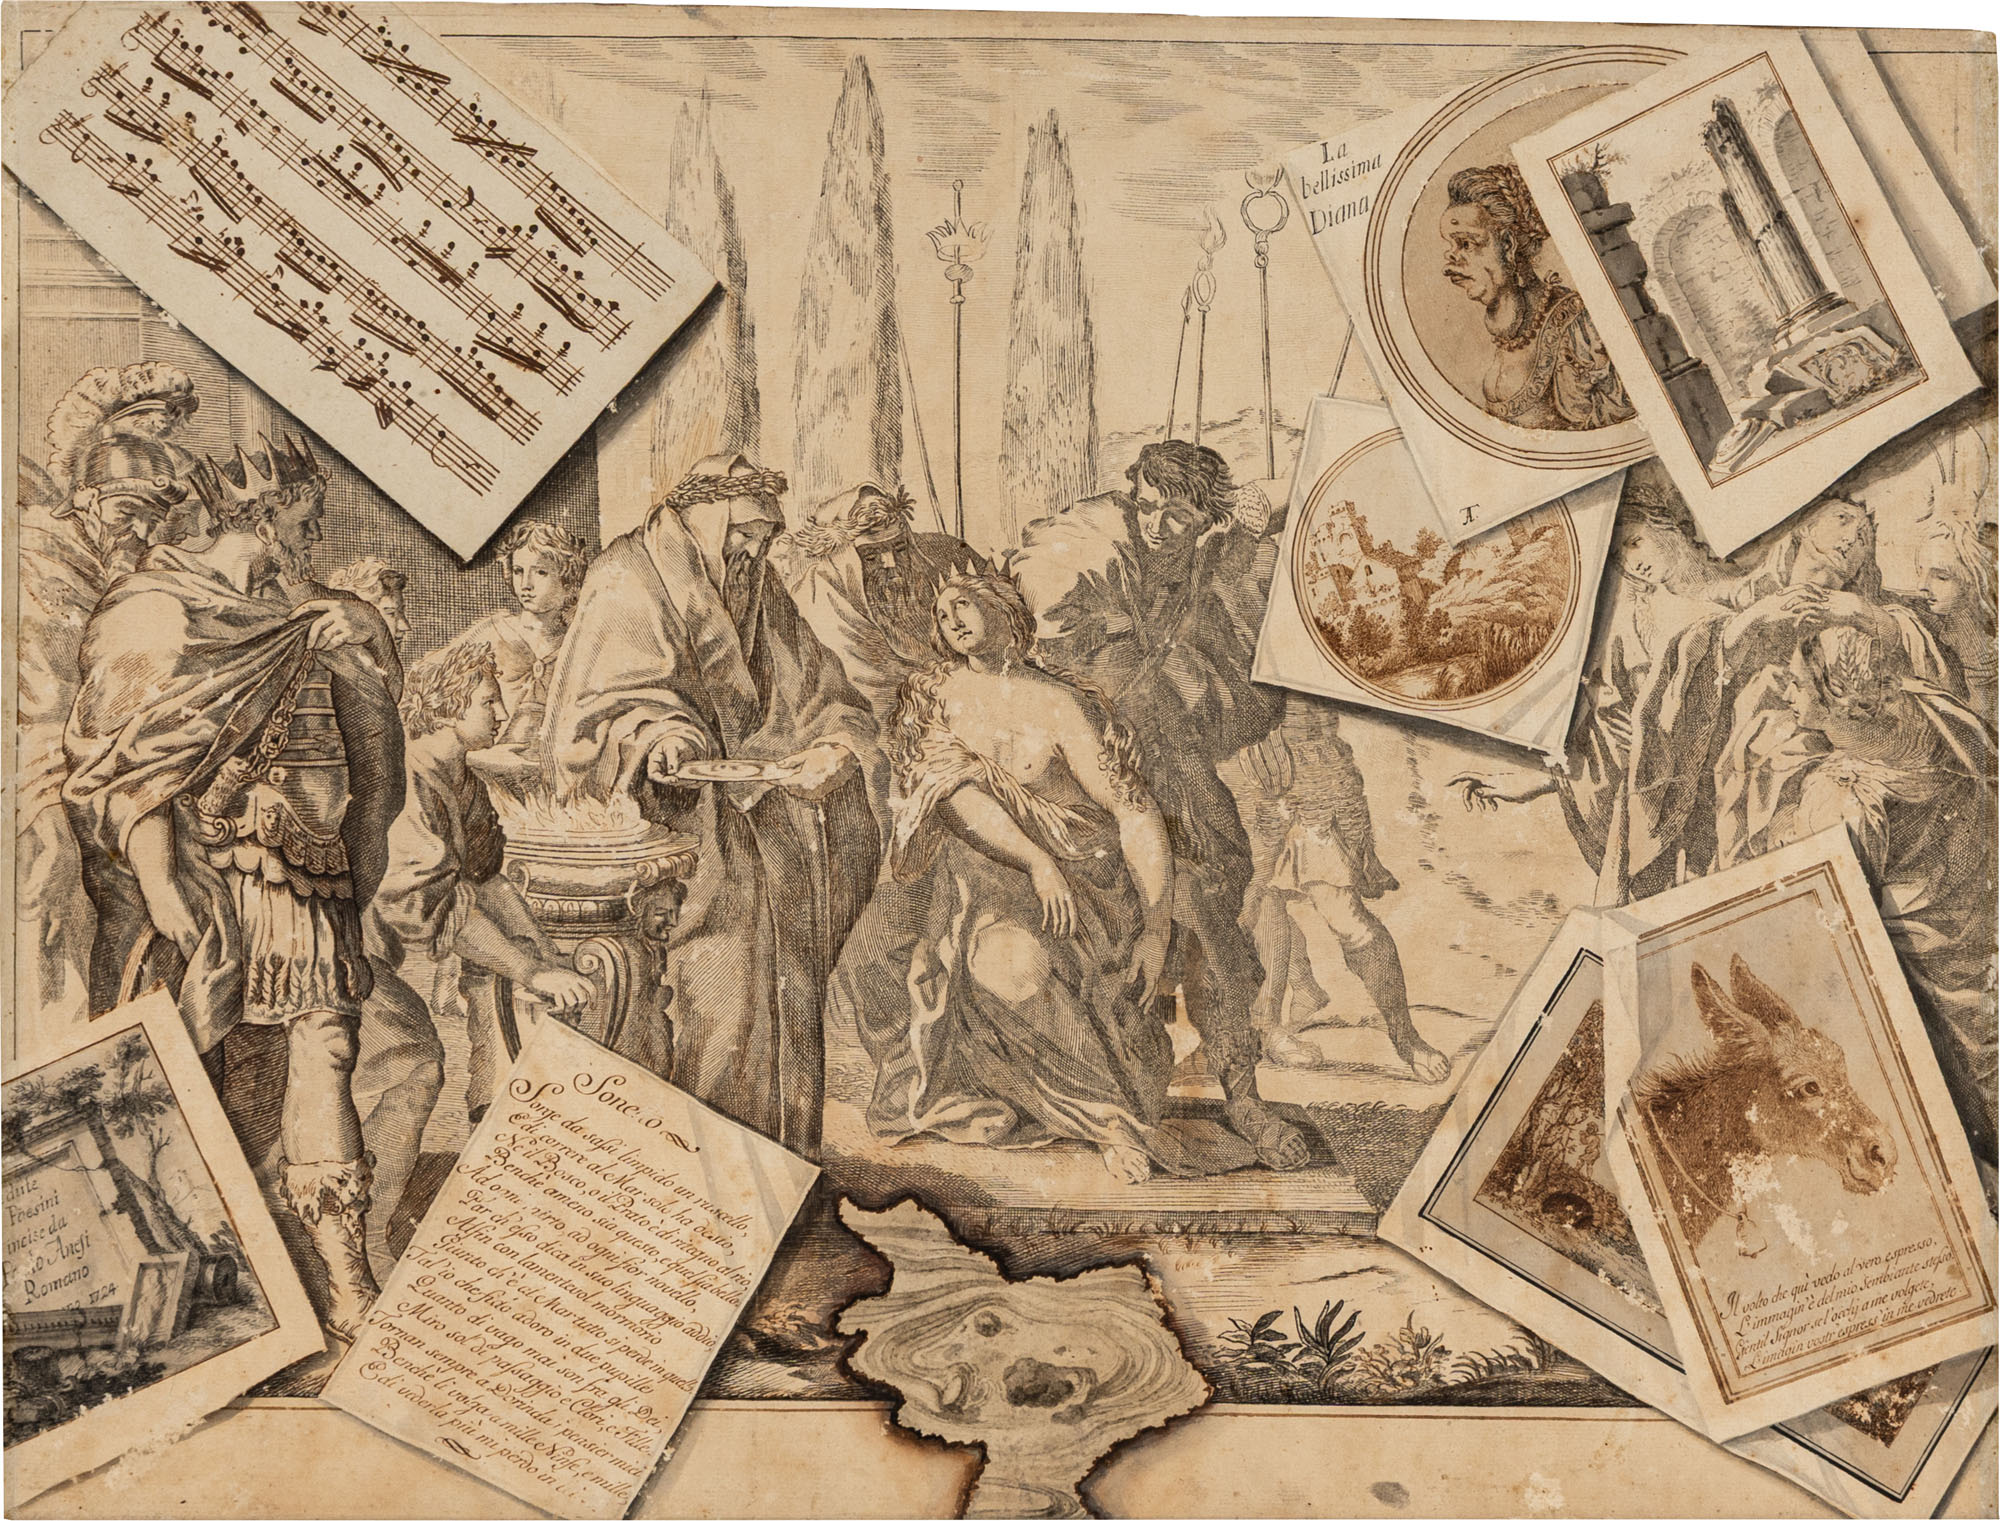 La
bellissima
Diana
AF
dute
Paesini
incise da
Anesi
Romano
1724
Sorge da sassi limpido un ruscello,
E di correre al Mar solo ha desio,
Ne il Bosco, o il Prato è di ritegno al rio,
Benchè ameno sia questo, e quel sia bello.
Ad ogni mirto, ad ogni fior novello,
Par ch'esso dica in suo linguaggio addio,
Alfin con lamentevol mormorio
Giunto ch'è al Mar tutto si perde in quello
Tal io che fido adoro in due pupille
Quanto di vago mai son fra gli Dei,
Miro sol di passaggio e Clori, e Fille
Tornan sempre a Dorinda i pensier miei
Benchè li volga a mille Ninfe, e mille,
E di vederla più mi perdo in
Il volto che quì vedo al vero espresso,
L'immagin'è del mio sembiante stesso
Gentil Signor se l'occhj a me volgete,
L'imagin vostr'espress'in me vedrete